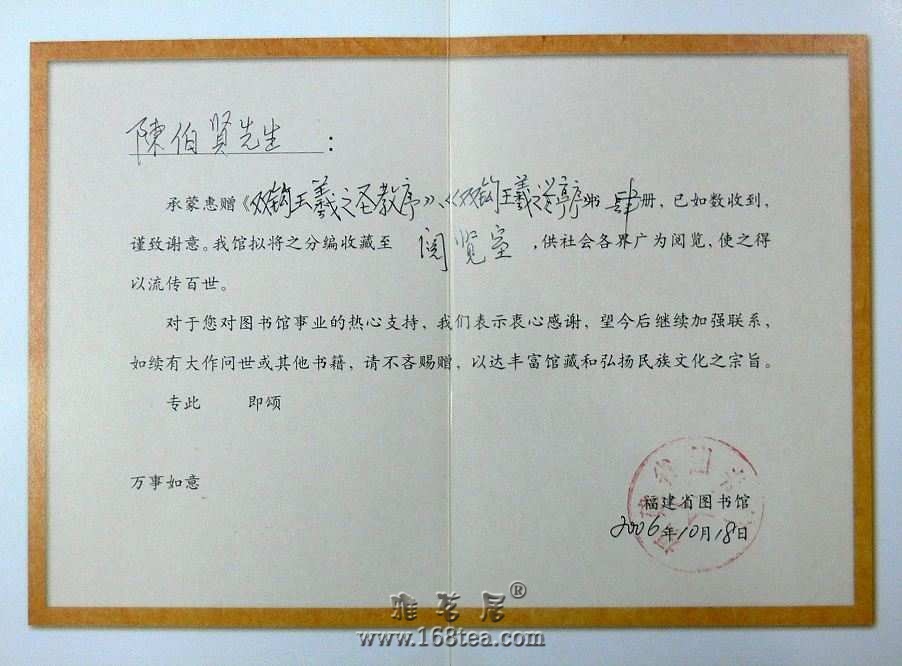 陳伯贤先生：
承蒙惠赠《双钩王羲之圣教序》、《双钩王羲之兰亭序》书肆册，已如数收到，
谨致谢意。我馆拟将之分编收藏至 阅览室，供社会各界广为阅览，使之得
以流传百世。
对于您对图书馆事业的热心支持，我们表示衷心感谢，望今后继续加强联系，
如续有大作问世或其他书籍，请不吝赐赠，以达丰富馆藏和弘扬民族文化之宗旨。
专此 即颂
万事如意
福建省图书馆
2006年10月18日
雅茗居®
www.168tea.com